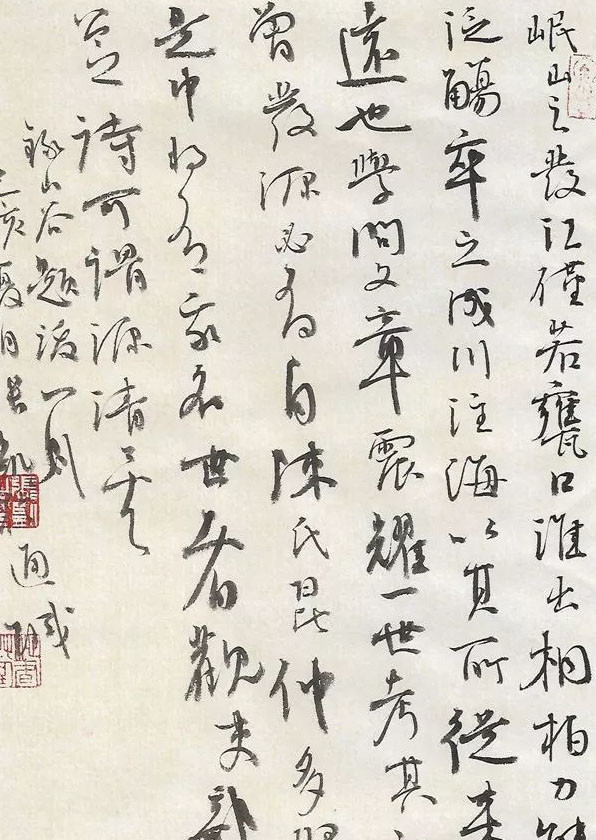 岷山之發江僅若甕口淮出桐柏力
泛觴卒之成川注海以其所從來
遠也學問文章震耀一世考其
曾發源必有自陳氏昆仲多
是中名世者觀夫
詩可謂源清矣
錄山谷題跋一則
亥夏月